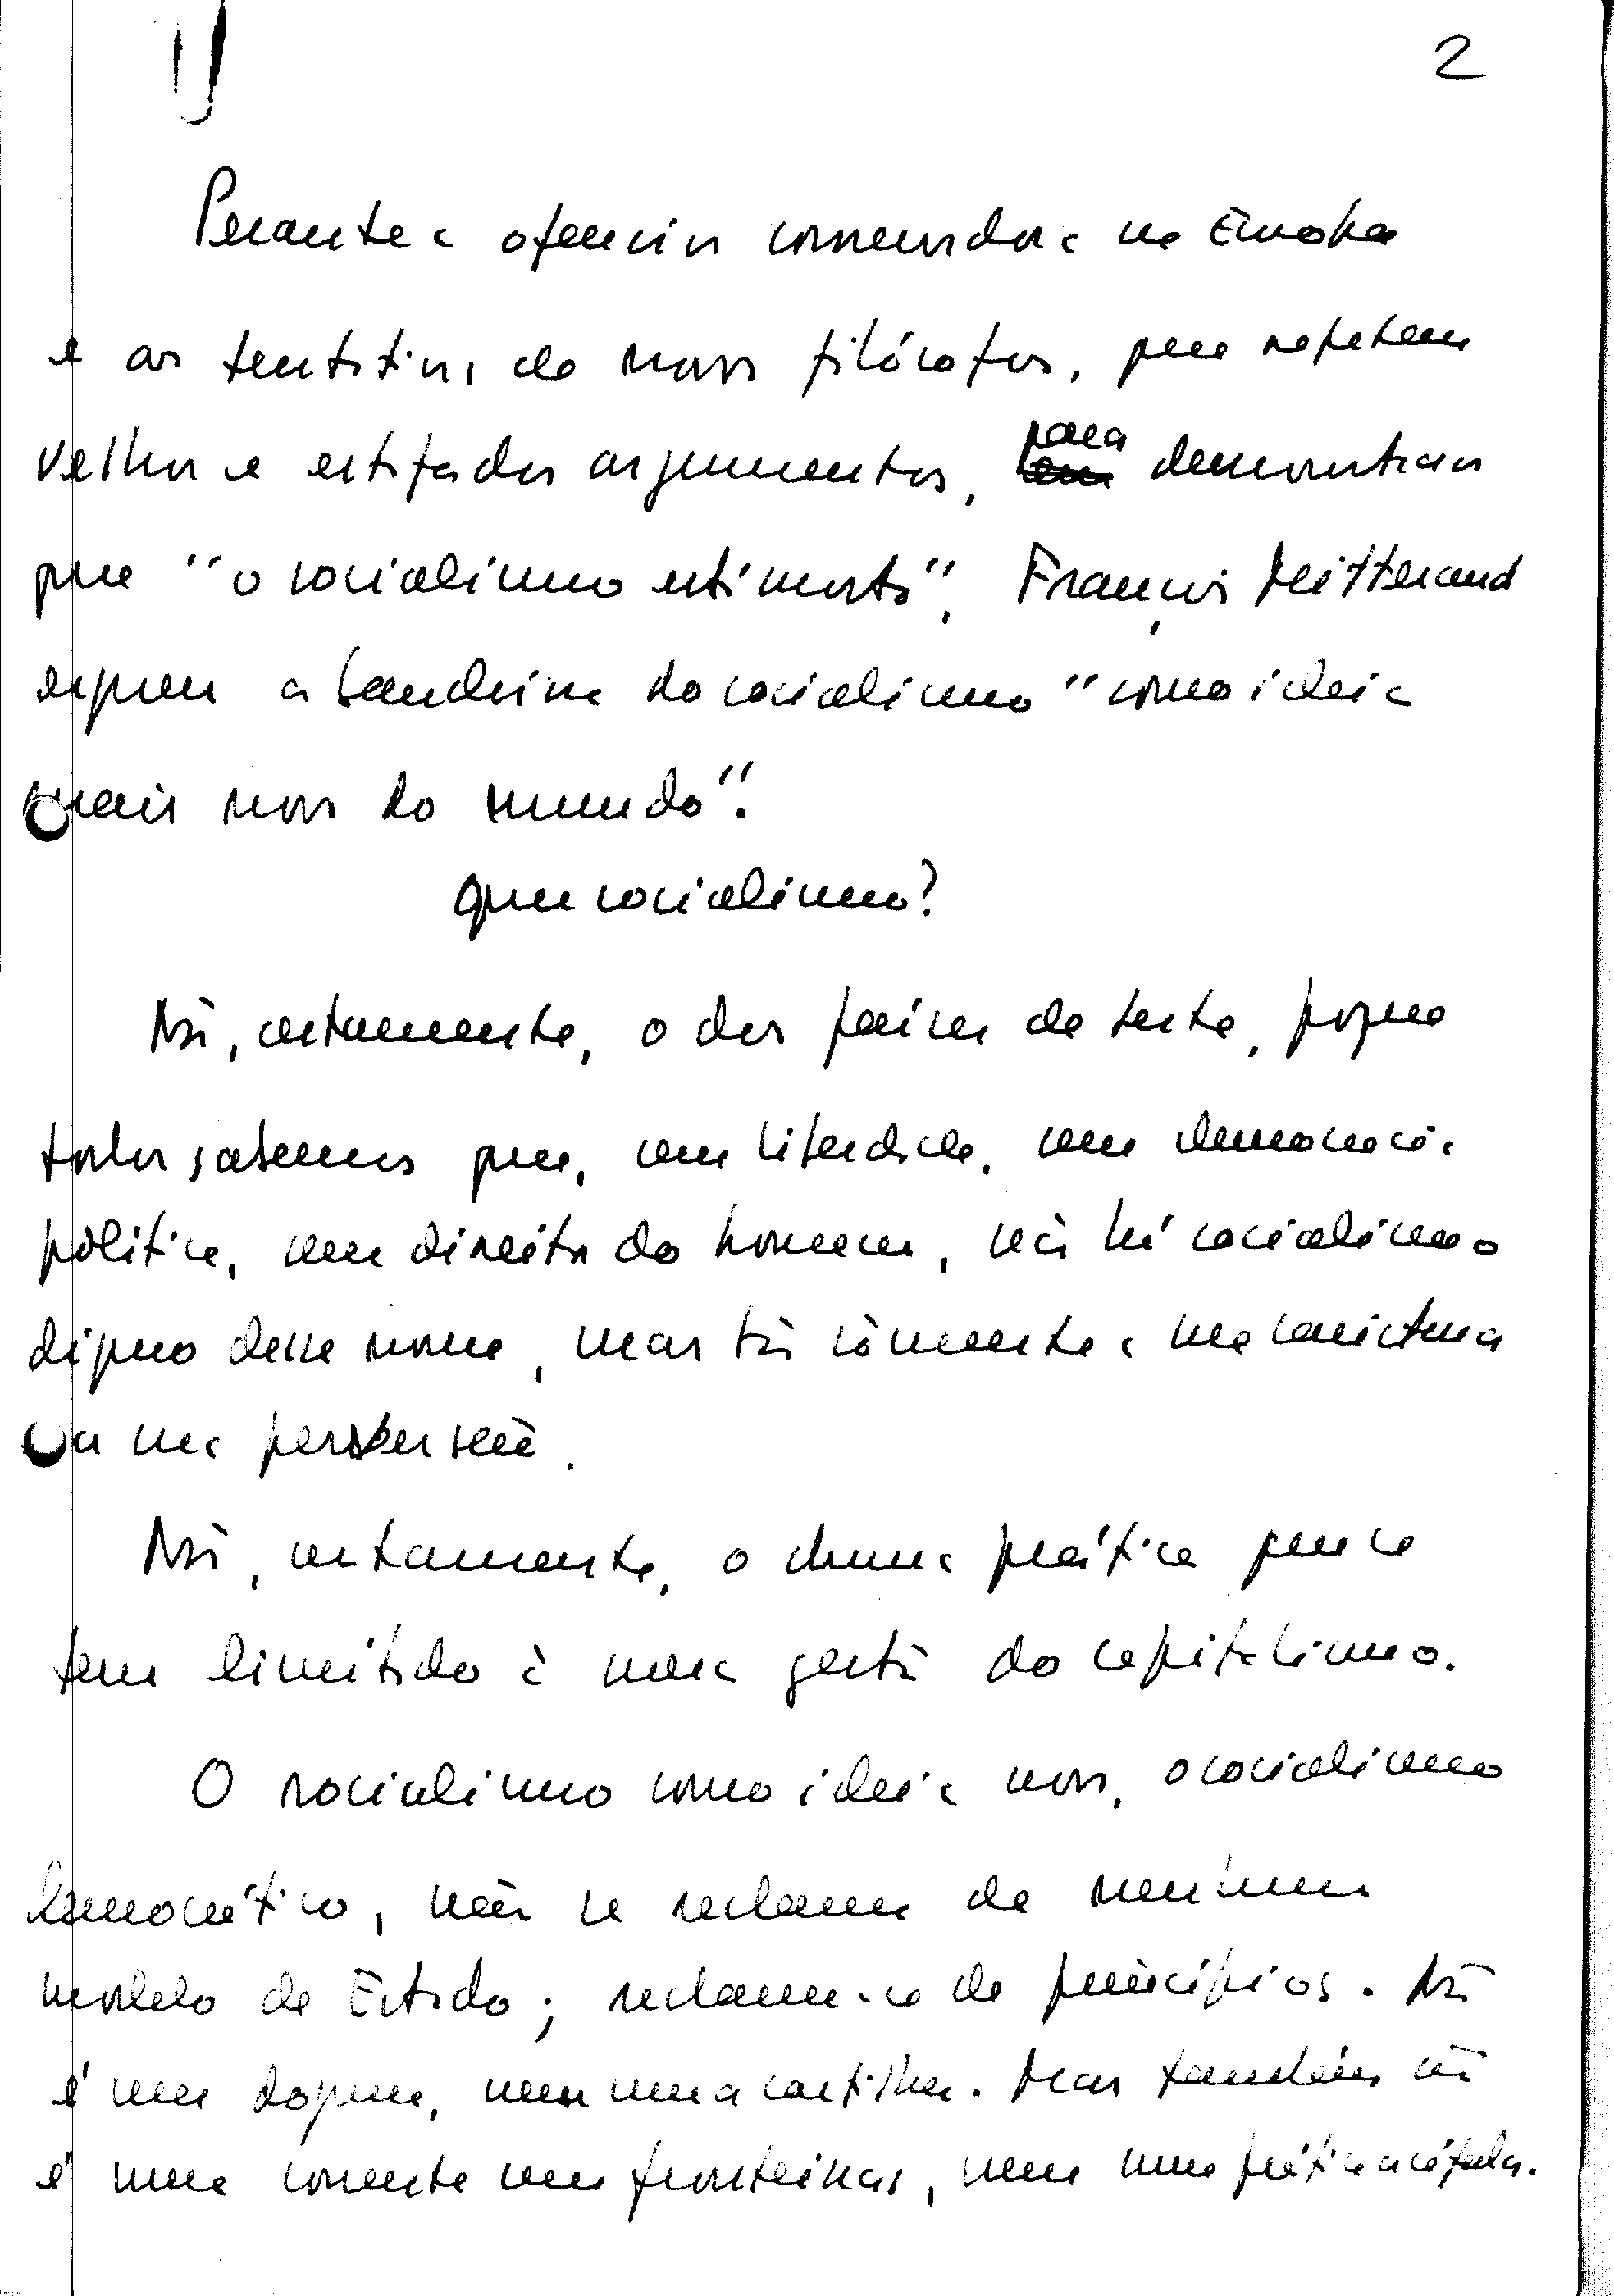 1)
2
Perante a ofensiva conservadora na Europa
e as tentativas de novos filósofos, que repetem
velhos e estafados argumentos, para demonstrar
que "o socialismo está morto", François Mitterrand
ergueu a bandeira do socialismo "como ideia
mais nova do mundo".
Que socialismo?
Não, certamente, o dos países de leste, porque
todos sabemos que, sem liberdade, sem democracia
política, sem direitos do homem, não há socialismo
digno desse nome, mas tão sòmente a sua caricatura
ou sua perversão.
Não, certamente, o duma prática que se
tem limitado à mera gestão do capitalismo.
O socialismo como ideia nova, o socialismo
democrático, não se reclama de nenhum
modelo de Estado; reclama-se de princípios. Não
é um dogma, nem uma cartilha. Mas também não
é uma corrente sem fronteiras, nem uma prática acéfala.